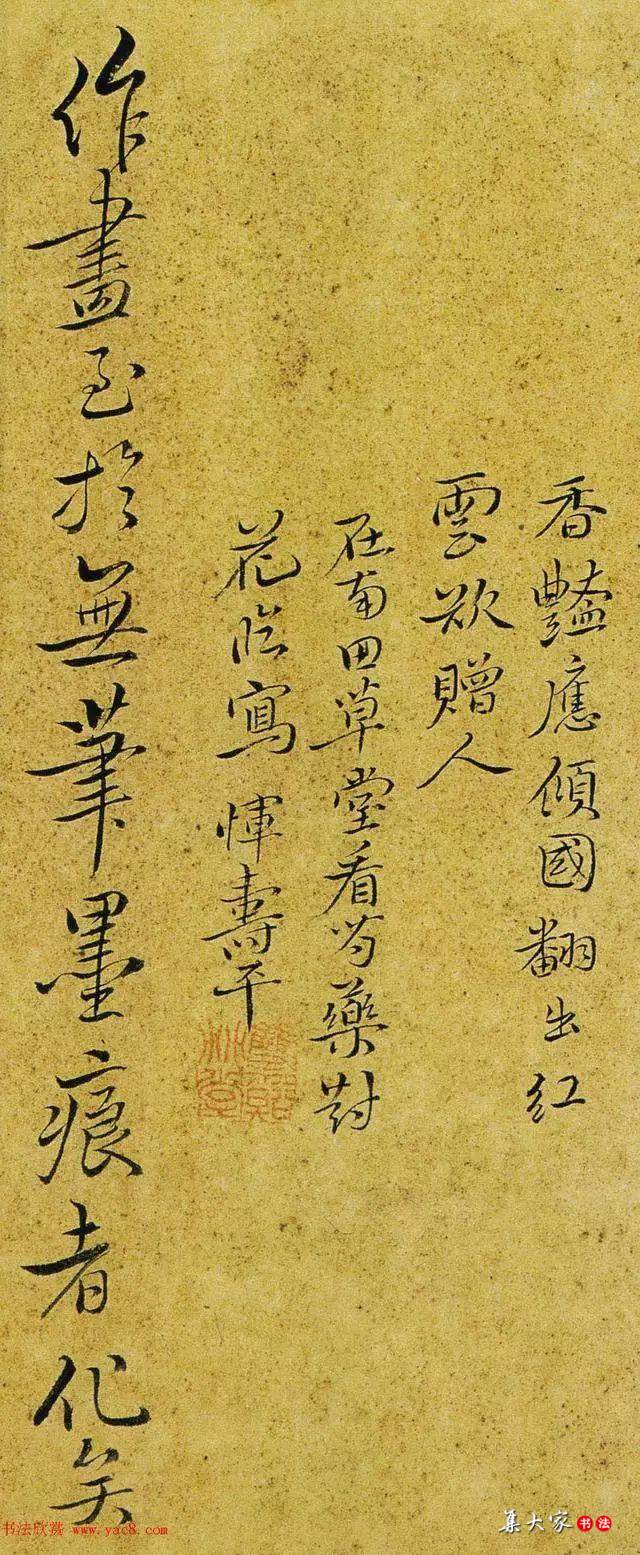 香豔應傾國翻出紅
雲欲贈人
在南田草堂看芍藥對
花臨寫 惲壽平
作畫至於無筆墨痕者化矣
书法欣赏 www.yac8.com
集大家书法